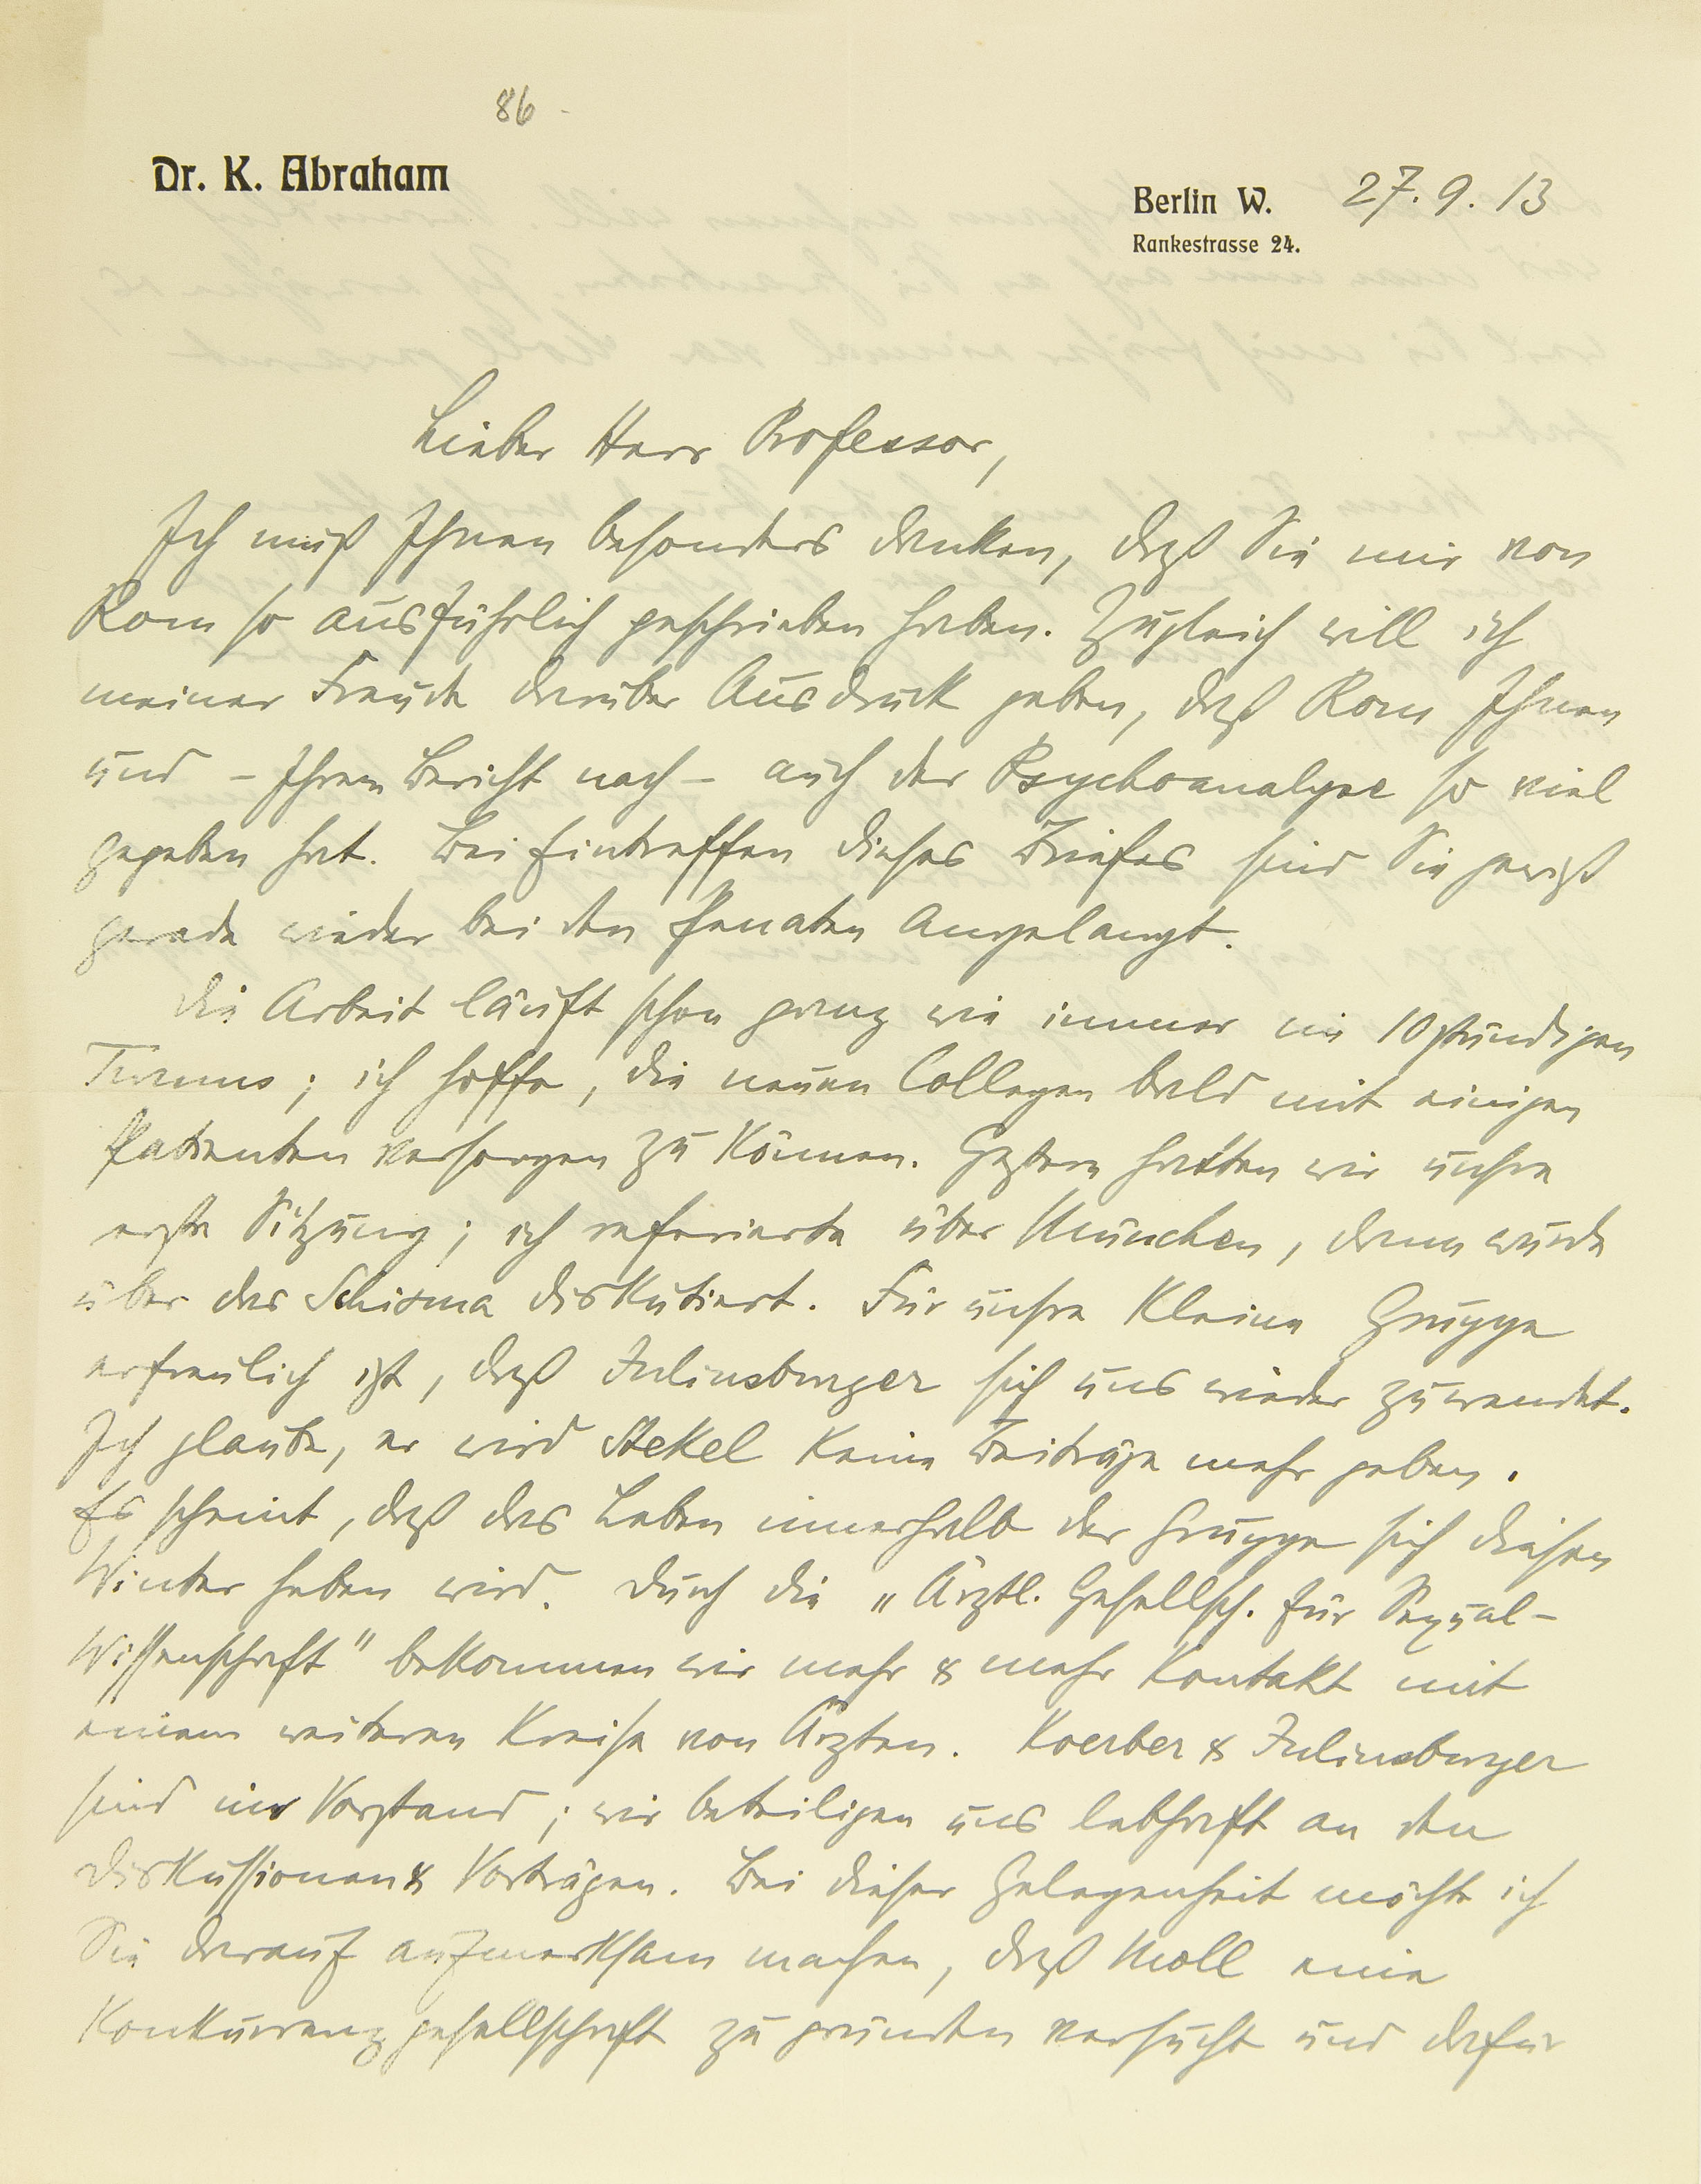 86 -
Dr. K. Abraham
Berlin W. 27.9.13
Rankestrasse 24.
Lieber Herr Professor,
Ich muß Ihnen besonders danken, daß Sie mir von
Rom so ausführlich geschrieben haben. Zugleich will ich
meiner Freude darüber Ausdruck geben, daß Rom Ihnen
und – Ihrem Bericht nach – auch der Psychoanalyse so viel
gegeben hat. Bei Eintreffen dieses Briefes sind Sie gewiß
gerade wieder bei den Penaten angelangt.
Die Arbeit läuft schon ganz wie immer im 10stündigen
Turnus; ich hoffe, die neuen Collegen bald mit einigen
Patienten versorgen zu können. Gestern hatten wir unsre
erste Sitzung; ich referierte über München, dann wurde
über das Schisma diskutiert. Für unsre kleine Gruppe
erfreulich ist, daß Juliusburger sich uns wieder zuwendet.
Ich glaube, er wird Stekel keine Beiträge mehr geben.
Es scheint, daß das Leben innerhalb der Gruppe sich diesen
Winter heben wird. Durch die „Ärztl. Gesellsch. für Sexual-
Wissenschaft" bekommen wir mehr & mehr Kontakt mit
einem weiteren Kreise von Ärzten. Koerber & Juliusburger
sind im Vorstand; wir beteiligen uns lebhaft an den
Diskussionen & Vorträgen. Bei dieser Gelegenheit möchte ich
Sie darauf aufmerksam machen, daß Moll eine
Konkurrenzgesellschaft zu gründen versucht und dafür